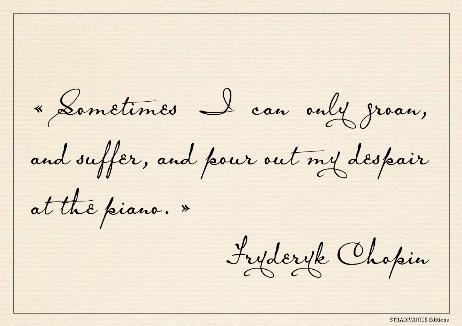 « Sometimes I can only groan,
and suffer, and pour out my despair
at the piano. »
Fryderyk Chopin
STRADIVARIUS Editions